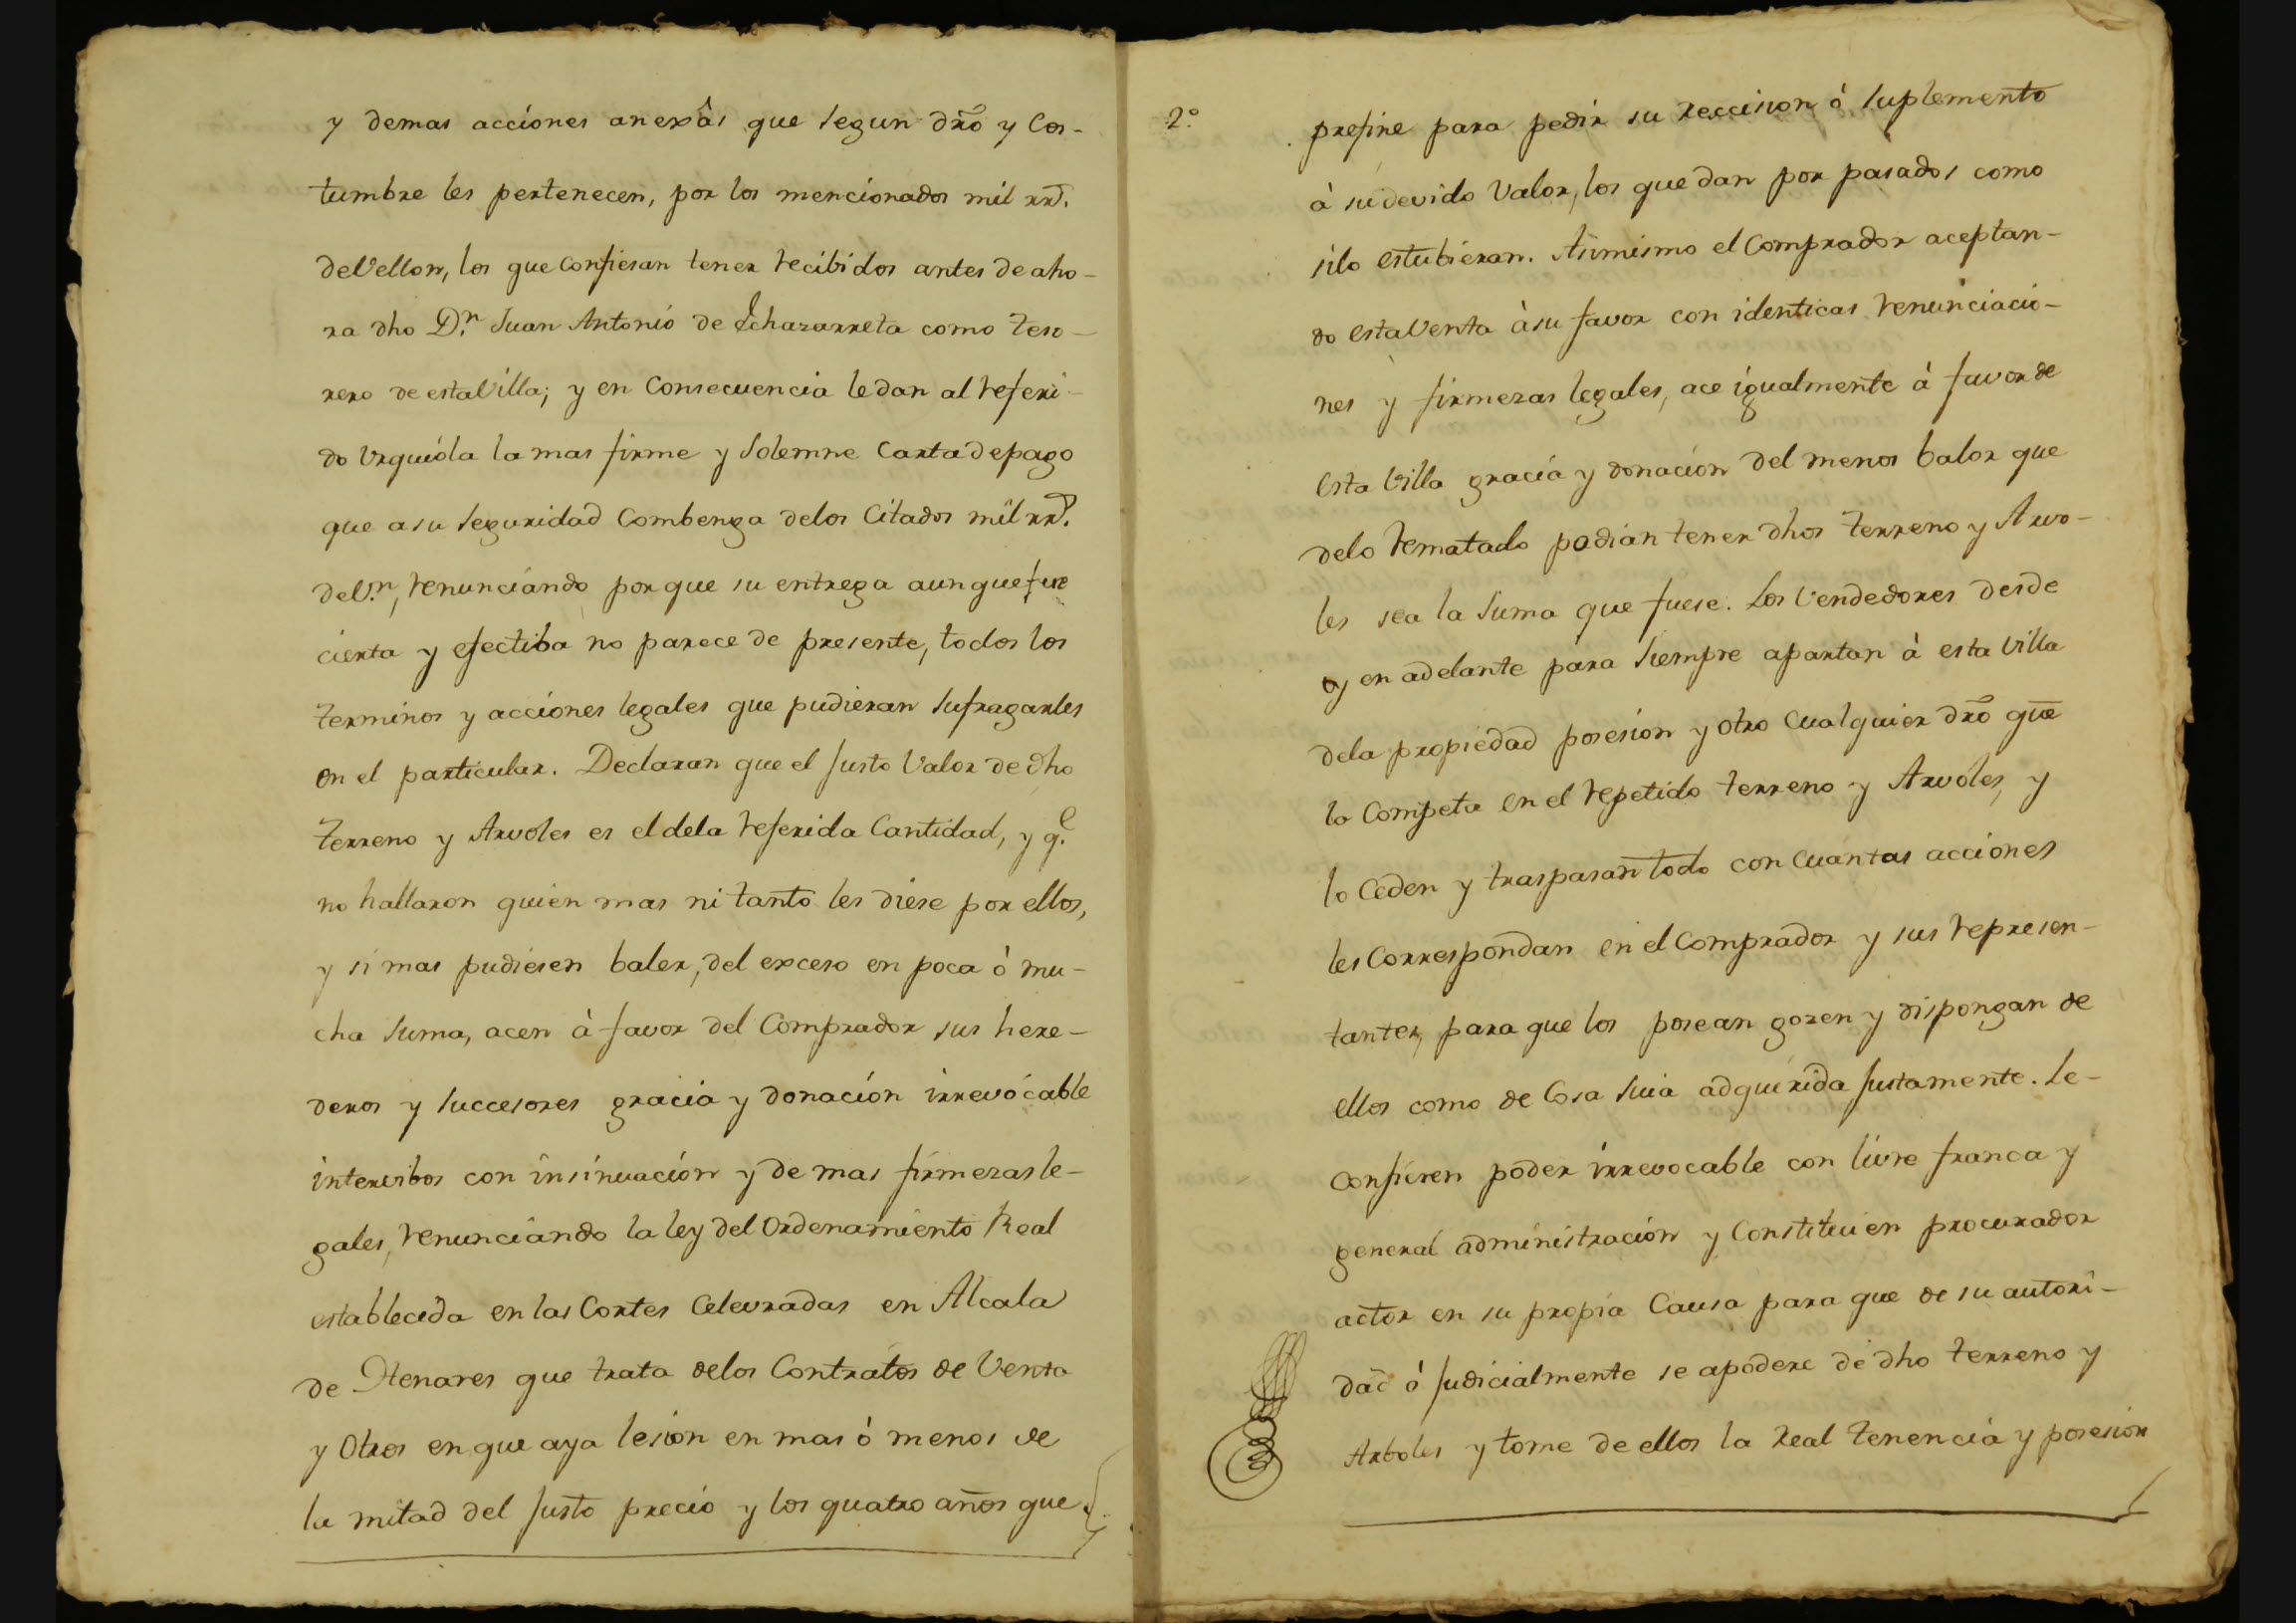 y demas acciones anexâs que segun dr̃o y Cos-
tumbre les pertenecen, por los mencionados mil rr̃.
deVellon, los que confiesan tener recibidos antes de aho-
ra dho D.n Juan Antonio de Echazarreta como Teso-
rero de estaVilla; y en Consecuencia le dan al referi-
do Urquiola la mas firme y Solemne Carta depago
que a su Seguridad Combenga delos Citados mil rr̃.
deV.n, renunciando porque su entrega aunque fue
cierta y efectiba no parece de presente, todos los
terminos y acciones legales que pudieran Sufragarles
en el particular. Declaran que el Justo Valor de dho
terreno y Arvoles es el dela referida Cantidad, y q.e
no hallaron quien mas ni tanto les diese por ellos,
y si mas pudiesen baler, del exceso en poca ò mu-
cha Suma, acen à favor del Comprador sus here-
deros y Succesores gracia y donación irrevócable
intervibos con insinuación y de mas firmezas le-
gales, renunciando la ley del Ordenamiento Real
establecida en las Cortes Celevradas en Alcala
de Henares que trata delos Contratos de Venta
y Otros en que aya lesion en mas ò menos de
la mitad del Justo precio y los quatro años que
2.º
prefine para pedir su reccision ò Suplemento
à su devido Valor, los que dan por pasados como
silo estubieran. Asimismo el Comprador aceptan-
do estaVenta àsu favor con identicas renunciacio-
nes y firmezas legales, ace igualmente à favor de
esta Villa gracia y donación del menos balor que
delo rematado podian tener dhos terreno y Arvo-
les sea la Suma que fuese. Los Vendedores desde
oy en adelante para Siempre apartan à esta Villa
dela propiedad posesion y otro Cualquier dr̃o que
la Competa en el repetido terreno y Arvoles, y
lo Ceden y traspasan todo con cuantas acciones
les Correspondan en el Comprador y sus represen-
tantes, para que los posean gozen y dispongan de
ellos como de Cosa Suia adquirida Justamente. Le
confieren poder irrevocable con livre franca y
general administración y Constituien procurador
actor en su propia Causa para que de su autori-
dad ó Judicialmente se apodere de dho terreno y
Arboles y tome de ellos la Real tenencia y posesion